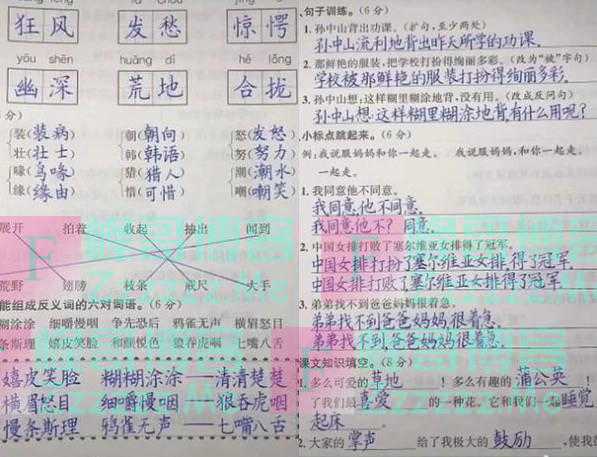 狂风 发愁 惊愕
yōu shēn huāng dì hé lǒng
幽深 荒地 合拢
分)
装(装病) 朝(朝向) 怒(发怒)
壮(壮士) 韩(韩语) 努(努力)
喙(鸟喙) 猎(猎人) 潮(潮水)
缘(缘由) 惜(可惜) 嘲(嘲笑)
展开 拍着 收起 抽出 闻到
荒野 翅膀 枝条 戒尺 大手
能组成反义词的六对词语。(6分)
糊涂涂 细嚼慢咽 争先恐后 鸦雀无声 横眉怒目
条斯理 嬉皮笑脸 和颜悦色 狼吞虎咽 七嘴八舌
嬉皮笑脸 糊糊涂涂——清清楚楚
横眉怒目 细嚼慢咽——狼吞虎咽
慢条斯理 鸦雀无声——七嘴八舌
、句子训练。(6分)
1. 孙中山背出功课。(扩句,至少两处)
孙中山流利地背出昨天所学的功课.
2. 那鲜艳的服装,把学校打扮得绚丽多彩。(改为“被”字句)
学校被那鲜艳的服装打扮得绚丽多彩.
3. 孙中山想:这样糊里糊涂地背,没有用。(改成反问句)
孙中山想:这样糊里糊涂地背,有什么用呢?
小标点跳起来。(6分)
例:我说服妈妈和你一起走。 我说服妈妈,和你一起走。
1. 我同意他不同意。
我同意,他不同意.
我同意他不?同意.
2. 中国女排打败了塞尔维亚女排得了冠军。
中国女排打扮了塞尔维亚女排,得了冠军.
中国女排打败了塞尔维亚女排得了冠军.
3. 弟弟找不到爸爸妈妈很着急。
弟弟找不到爸爸妈妈,很着急.
弟弟找不到,爸爸妈妈很着急.
课文知识填空。(8分)
1. 多么可爱的草地!多么有趣的蒲公英!
了我们最喜爱的一种花。它和我们一起睡觉
起床
2. 大家的掌声给了我极大的鼓励,使我